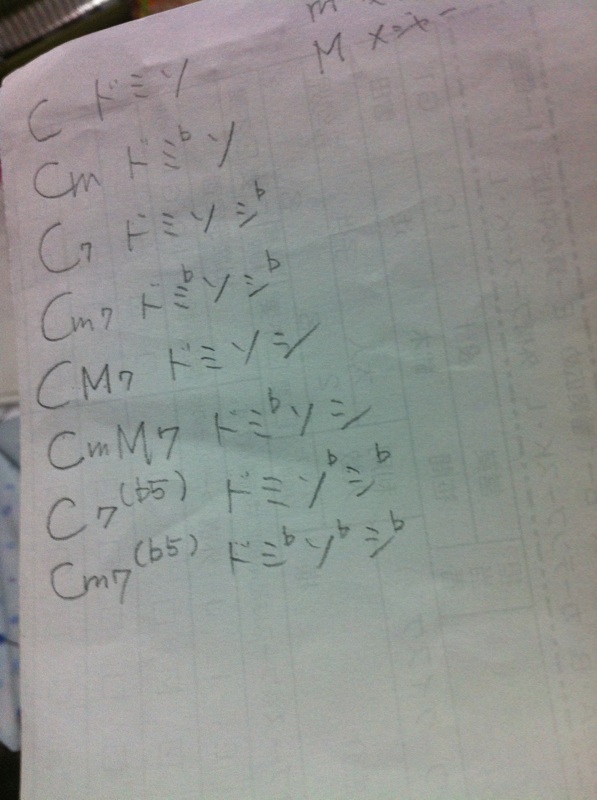 M メジャー
C ドミソ
Cm ドミbソ
C7 ドミソシb
Cm7 ドミbソシb
CM7 ドミソシ
CmM7 ドミbソシ
C7(b5) ドミソbシb
Cm7(b5) ドミbソbシb